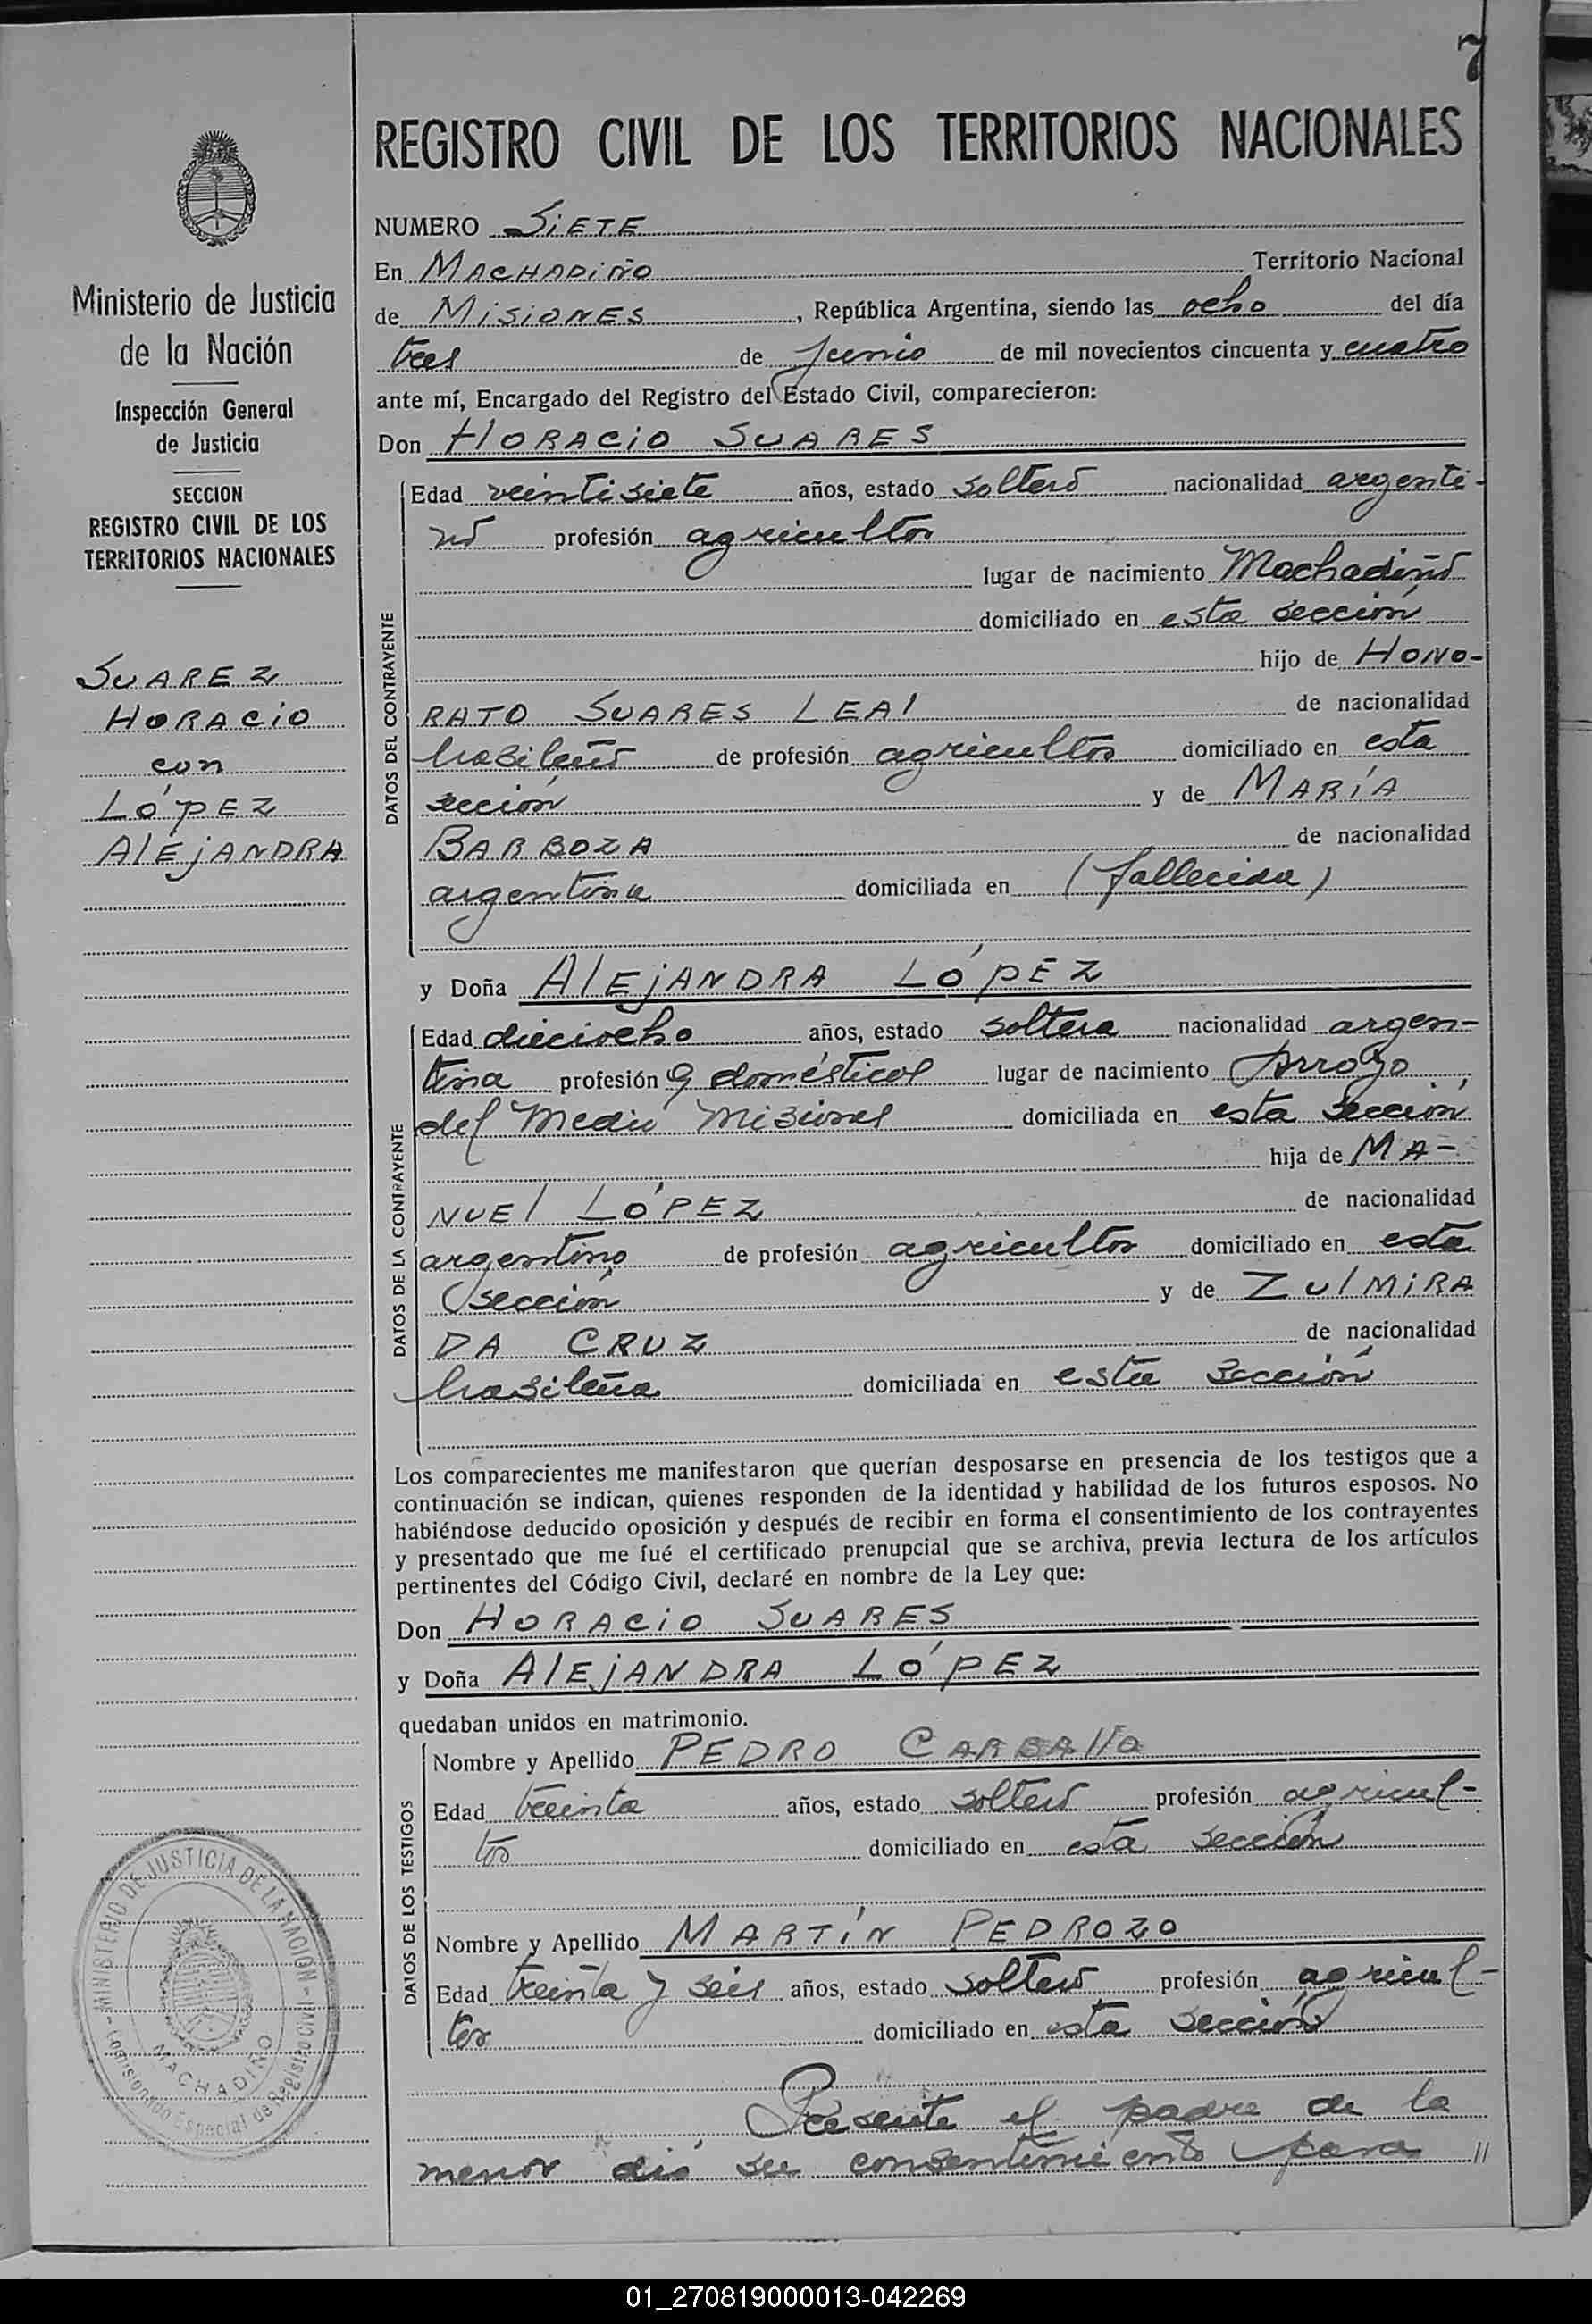 7
REGISTRO CIVIL DE LOS TERRITORIOS NACIONALES
NUMERO SiETE
En MACHADiÑO Territorio Nacional
de MiSiONES, República Argentina, siendo las ocho del día
tres de Junio de mil novecientos cincuenta y cuatro
ante mí, Encargado del Registro del Estado Civil, comparecieron:
Don HORACiO SUARES
DATOS DEL CONTRAYENTE
Edad veintisiete años, estado soltero nacionalidad argenti-
no profesión agricultor
lugar de nacimiento Machadiño
domiciliado en esta sección
hijo de HONO-
RATO SUARES LEAl de nacionalidad
brasileño de profesión agricultor domiciliado en esta
sección y de MARíA
BARBOZA de nacionalidad
argentina domiciliada en (fallecida)
y Doña AlEjANDRA LóPEZ
DATOS DE LA CONTRAYENTE
Edad dieciocho años, estado soltera nacionalidad argen-
tina profesión q domésticos lugar de nacimiento Arroyo
del Medio Misiones domiciliada en esta sección
hija de MA-
NUEl LóPEZ de nacionalidad
argentino de profesión agricultor domiciliado en esta
sección y de ZUlMiRA
DA CRUZ de nacionalidad
brasileña domiciliada en esta sección
Los comparecientes me manifestaron que querían desposarse en presencia de los testigos que a
continuación se indican, quienes responden de la identidad y habilidad de los futuros esposos. No
habiéndose deducido oposición y después de recibir en forma el consentimiento de los contrayentes
y presentado que me fué el certificado prenupcial que se archiva, previa lectura de los artículos
pertinentes del Código Civil, declaré en nombre de la Ley que:
Don HORACiO SUARES
y Doña AlEjANDRA LóPEZ
quedaban unidos en matrimonio.
DATOS DE LOS TESTIGOS
Nombre y Apellido PEDRO CARBAllO
Edad treinta años, estado soltero profesión agricul-
tor domiciliado en esta sección
Nombre y Apellido MARTíN PEDROZO
Edad treinta y seis años, estado soltero profesión agricul-
tor domiciliado en esta sección
Presente el padre de la
menor dió su consentimiento para //
Ministerio de Justicia
de la Nación
Inspección General
de Justicia
SECCION
REGISTRO CIVIL DE LOS
TERRITORIOS NACIONALES
SUAREZ
HORACiO
con
LóPEZ
AlEjANDRA
MINISTERIO DE JUSTICIA DE LA NACIÓN
Comisionado Especial de Registro Civil
MACHADIÑO
01_270819000013-042269